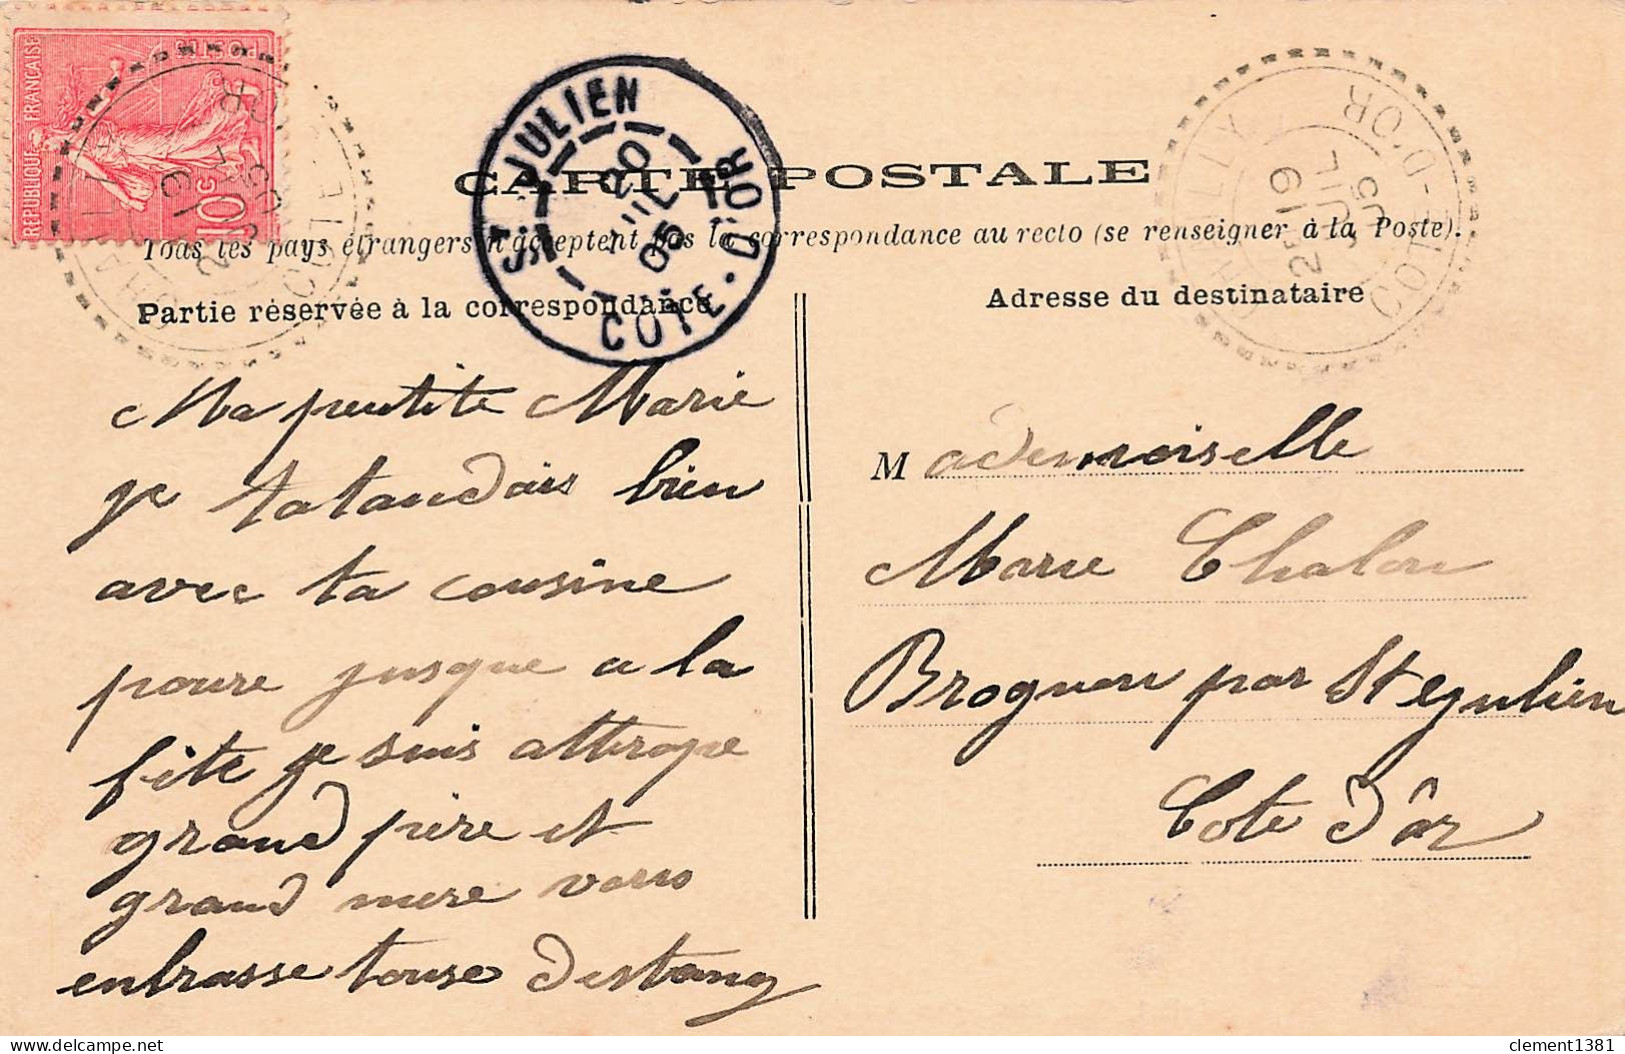 RÉPUBLIQUE FRANÇAISE
POSTES
10c
ST JULIEN
20
JUIL
05
COTE-D'OR
2E 19
JUIL
05
COTE-D'OR
CARTE POSTALE
Tous les pays étrangers n'acceptent pas la correspondance au recto (se renseigner à la Poste).
Partie réservée à la correspondance
Adresse du destinataire
Ma peutite Marie
je tatandais bien
avec ta cousine
poure jusque a la
fête je suis attrope
grand père et
grand mere vous
enbrasse touse Destang
Mademoiselle
Marie Chalon
Brognon par St Julien
Cote d'ôr
delcampe.net
clement1381